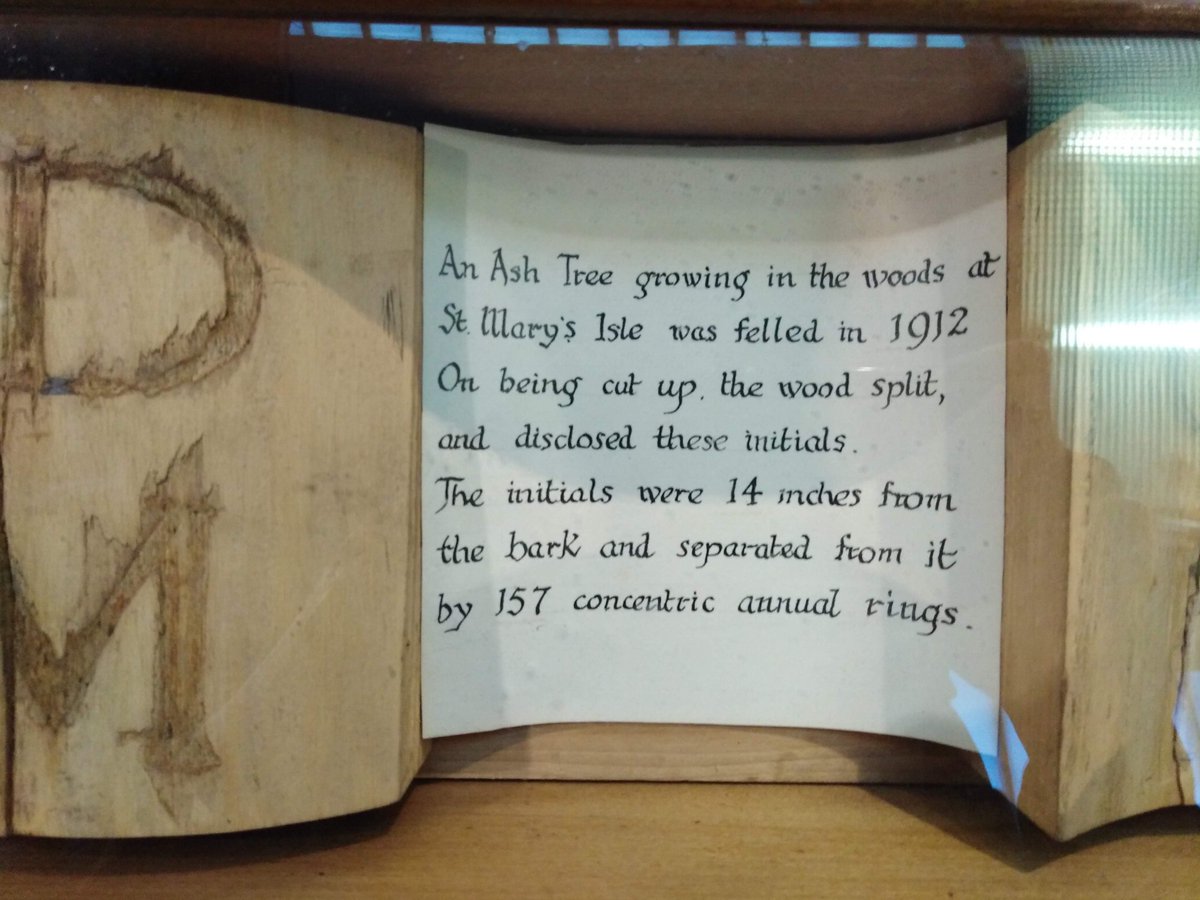 An Ash Tree growing in the woods at
St. Mary's Isle was felled in 1912
On being cut up. the wood split,
and disclosed these initials.
The initials were 14 inches from
the bark and separated from it
by 157 concentric annual rings.